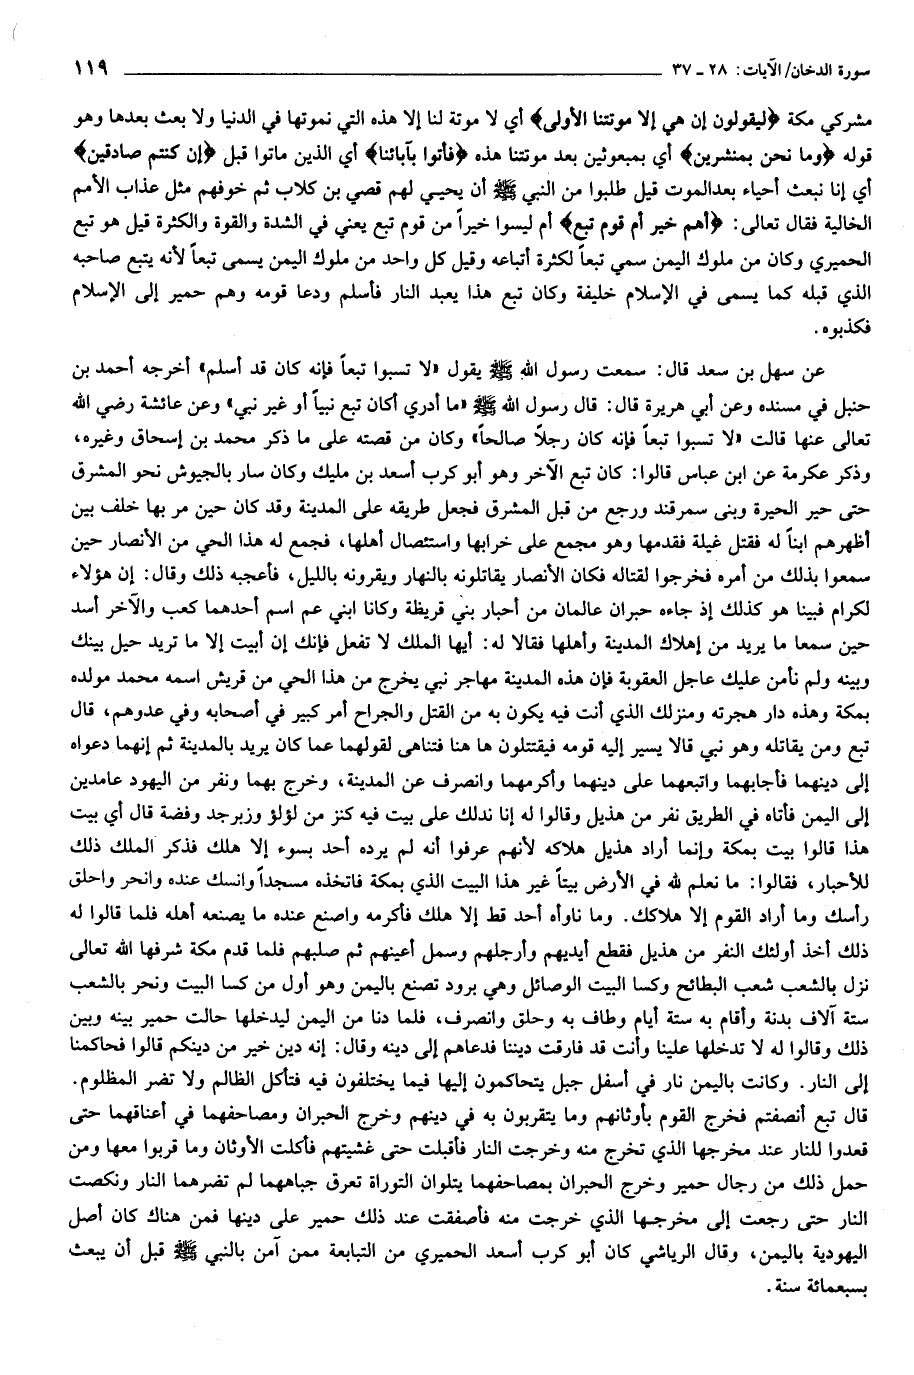 سورة الدخان/ الآيات: ٢٨ ـ ٣٧ ١١٩
مشركي مكة ﴿ليقولون إن هي إلا موتتنا الأولى﴾ أي لا موتة لنا إلا هذه التي نموتها في الدنيا ولا بعث بعدها وهو
قوله ﴿وما نحن بمنشرين﴾ أي بمبعوثين بعد موتتنا هذه ﴿فأتوا بآبائنا﴾ أي الذين ماتوا قبل ﴿إن كنتم صادقين﴾
أي إنا نبعث أحياء بعدالموت قيل طلبوا من النبي ﷺ أن يحيـي لهم قصي بن كلاب ثم خوفهم مثل عذاب الأمم
الخالية فقال تعالى: ﴿أهم خير أم قوم تبع﴾ أم ليسوا خيراً من قوم تبع يعني في الشدة والقوة والكثرة قيل هو تبع
الحميري وكان من ملوك اليمن سمي تبعاً لكثرة أتباعه وقيل كل واحد من ملوك اليمن يسمى تبعاً لأنه يتبع صاحبه
الذي قبله كما يسمى في الإسلام خليفة وكان تبع هذا يعبد النار فأسلم ودعا قومه وهم حمير إلى الإسلام
فكذبوه.
عن سهل بن سعد قال: سمعت رسول الله ﷺ يقول «لا تسبوا تبعاً فإنه كان قد أسلم» أخرجه أحمد بن
حنبل في مسنده وعن أبي هريرة قال: قال رسول الله ﷺ «ما أدري أكان تبع نبياً أو غير نبي» وعن عائشة رضي الله
تعالى عنها قالت «لا تسبوا تبعاً فإنه كان رجلاً صالحاً» وكان من قصته على ما ذكر محمد بن إسحاق وغيره،
وذكر عكرمة عن ابن عباس قالوا: كان تبع الآخر وهو أبو كرب أسعد بن مليك وكان سار بالجيوش نحو المشرق
حتى حير الحيرة وبنى سمرقند ورجع من قبل المشرق فجعل طريقه على المدينة وقد كان حين مر بها خلف بين
أظهرهم ابناً له فقتل غيلة فقدمها وهو مجمع على خرابها واستئصال أهلها، فجمع له هذا الحي من الأنصار حين
سمعوا بذلك من أمره فخرجوا لقتاله فكان الأنصار يقاتلونه بالنهار ويقرونه بالليل، فأعجبه ذلك وقال: إن هؤلاء
لكرام فبينا هو كذلك إذ جاءه حبران عالمان من أحبار بني قريظة وكانا ابني عم اسم أحدهما كعب والآخر أسد
حين سمعا ما يريد من إهلاك المدينة وأهلها فقالا له: أيها الملك لا تفعل فإنك إن أبيت إلا ما تريد حيل بينك
وبينه ولم نأمن عليك عاجل العقوبة فإن هذه المدينة مهاجر نبي يخرج من هذا الحي من قريش اسمه محمد مولده
بمكة وهذه دار هجرته ومنزلك الذي أنت فيه يكون به من القتل والجراح أمر كبير في أصحابه وفي عدوهم، قال
تبع ومن يقاتله وهو نبي قالا يسير إليه قومه فيقتتلون ها هنا فتناهى لقولهما عما كان يريد بالمدينة ثم إنهما دعواه
إلى دينهما فأجابهما واتبعهما على دينهما وأكرمهما وانصرف عن المدينة، وخرج بهما ونفر من اليهود عامدين
إلى اليمن فأتاه في الطريق نفر من هذيل وقالوا له إنا ندلك على بيت فيه كنز من لؤلؤ وزبرجد وفضة قال أي بيت
هذا قالوا بيت بمكة وإنما أراد هذيل هلاكه لأنهم عرفوا أنه لم يرده أحد بسوء إلا هلك فذكر الملك ذلك
للأحبار، فقالوا: ما نعلم لله في الأرض بيتاً غير هذا البيت الذي بمكة فاتخذه مسجداً وانسك عنده وانحر واحلق
رأسك وما أراد القوم إلا هلاكك. وما ناوأه أحد قط إلا هلك فأكرمه واصنع عنده ما يصنعه أهله فلما قالوا له
ذلك أخذ أولئك النفر من هذيل فقطع أيديهم وأرجلهم وسمل أعينهم ثم صلبهم فلما قدم مكة شرفها الله تعالى
نزل بالشعب شعب البطائح وكسا البيت الوصائل وهي برود تصنع باليمن وهو أول من كسا البيت ونحر بالشعب
ستة آلاف بدنة وأقام به ستة أيام وطاف به وحلق وانصرف، فلما دنا من اليمن ليدخلها حالت حمير بينه وبين
ذلك وقالوا له لا تدخلها علينا وأنت قد فارقت ديننا فدعاهم إلى دينه وقال: إنه دين خير من دينكم قالوا فحاكمنا
إلى النار. وكانت باليمن نار في أسفل جبل يتحاكمون إليها فيما يختلفون فيه فتأكل الظالم ولا تضر المظلوم.
قال تبع أنصفتم فخرج القوم بأوثانهم وما يتقربون به في دينهم وخرج الحبران ومصاحفهما في أعناقهما حتى
قعدوا للنار عند مخرجها الذي تخرج منه وخرجت النار فأقبلت حتى غشيتهم فأكلت الأوثان وما قربوا معها ومن
حمل ذلك من رجال حمير وخرج الحبران بمصاحفهما يتلوان التوراة تعرق جباههما لم تضرهما النار ونكصت
النار حتى رجعت إلى مخرجها الذي خرجت منه فأصفقت عند ذلك حمير على دينها فمن هناك كان أصل
اليهودية باليمن، وقال الرياشي كان أبو كرب أسعد الحميري من التبابعة ممن آمن بالنبي ﷺ قبل أن يبعث
بسبعمائة سنة.